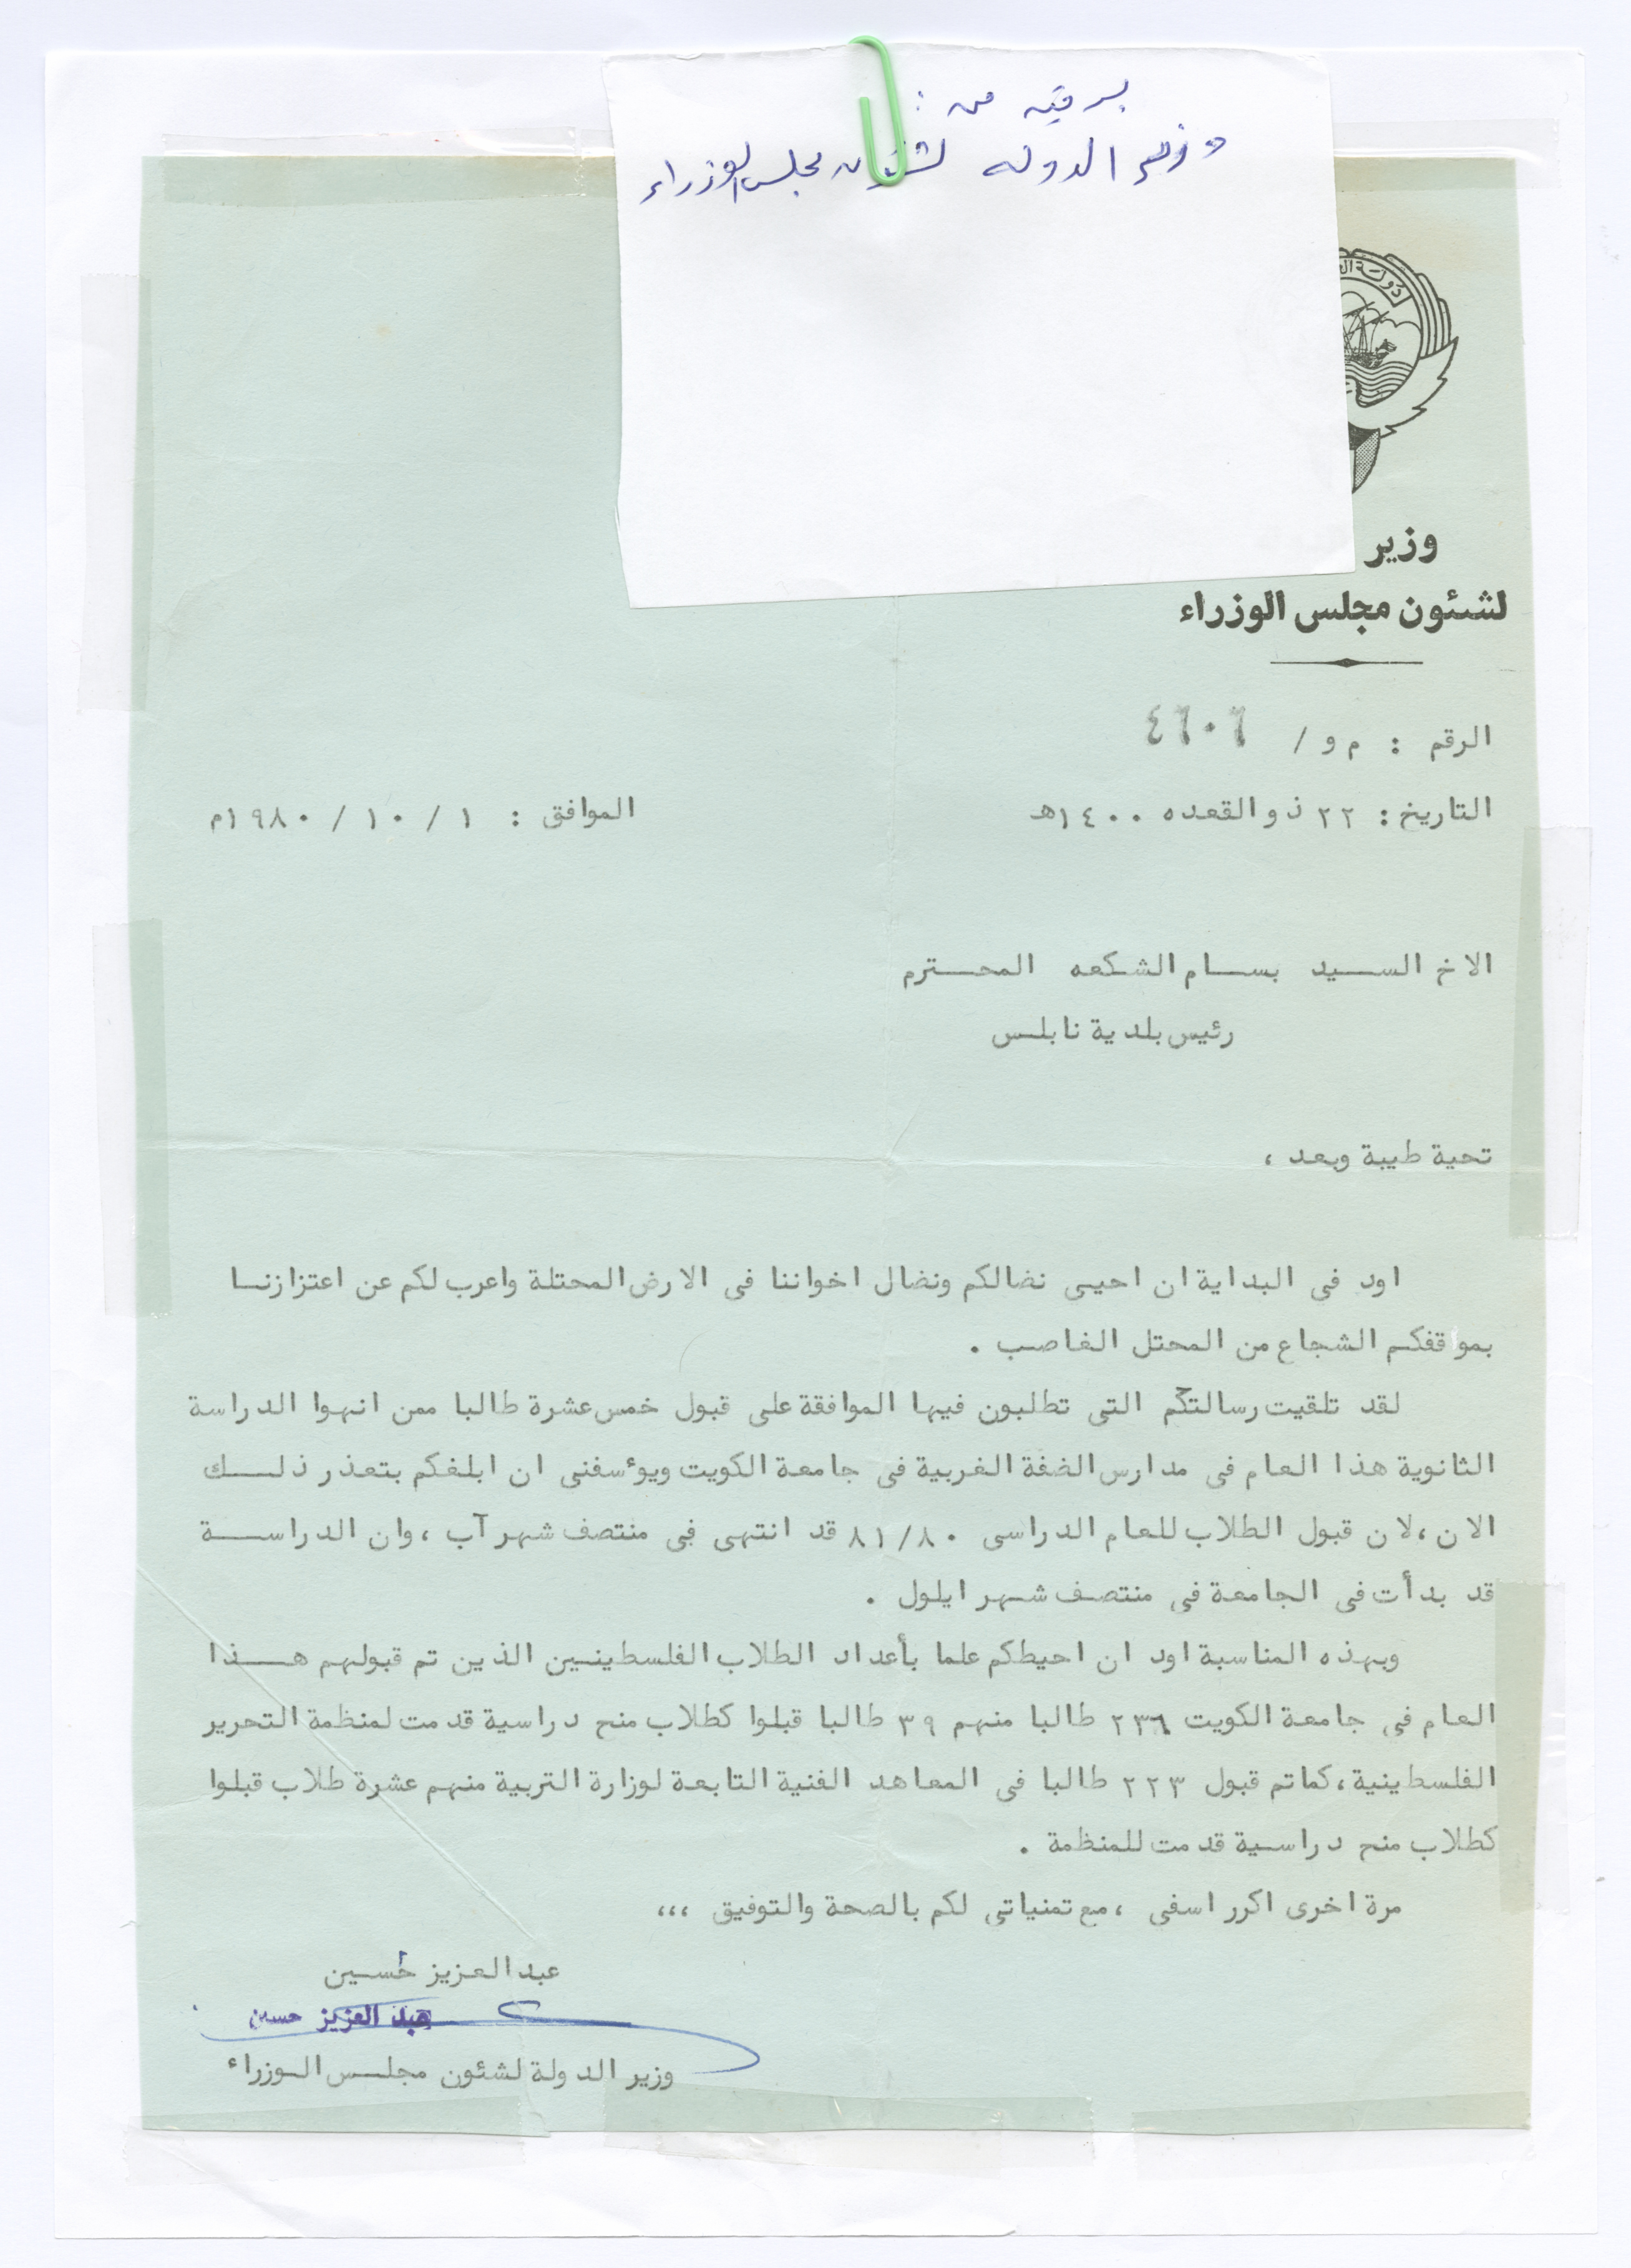 برقيه من :
وزير الدولة لشئون مجلس الوزراء
دولة ال
وزير
لشئون مجلس الوزراء
الرقم : م و / ٤٦٠٦
التاريخ : ٢٢ ذو القعده ١٤٠٠هـ الموافق : ١ / ١٠ / ١٩٨٠م
الاخ السيد بسام الشكعه المحترم
رئيس بلدية نابلس
تحية طيبة وبعد ،
اود فى البداية ان احيى نضالكم ونضال اخواننا فى الارض المحتلة واعرب لكم عن اعتزازنا
بمواقفكم الشجاع من المحتل الغاصب .
لقد تلقيت رسالتكم التى تطلبون فيها الموافقة على قبول خمس عشرة طالبا ممن انهوا الدراسة
الثانوية هذا العام فى مدارس الضفة الغربية فى جامعة الكويت ويوءسفنى ان ابلغكم بتعذر ذلك
الان ، لان قبول الطلاب للعام الدراسى ٨١/٨٠ قد انتهى فى منتصف شهر آب ، وان الدراسة
قد بدأت فى الجامعة فى منتصف شهر ايلول .
وبهذه المناسبة اود ان احيطكم علما بأعداد الطلاب الفلسطينيين الذين تم قبولهم هذا
العام فى جامعة الكويت ٢٣٦ طالبا منهم ٣٩ طالبا قبلوا كطلاب منح دراسية قدمت لمنظمة التحرير
الفلسطينية ، كماتم قبول ٢٢٣ طالبا فى المعاهد الفنية التابعة لوزارة التربية منهم عشرة طلاب قبلوا
كطلاب منح دراسية قدمت للمنظمة .
مرة اخرى اكرر اسفى ، مع تمنياتى لكم بالصحة والتوفيق ،،،
عبد العزيز حُسين
عبد العزيز حسين
وزير الدولة لشئون مجلس الوزراء